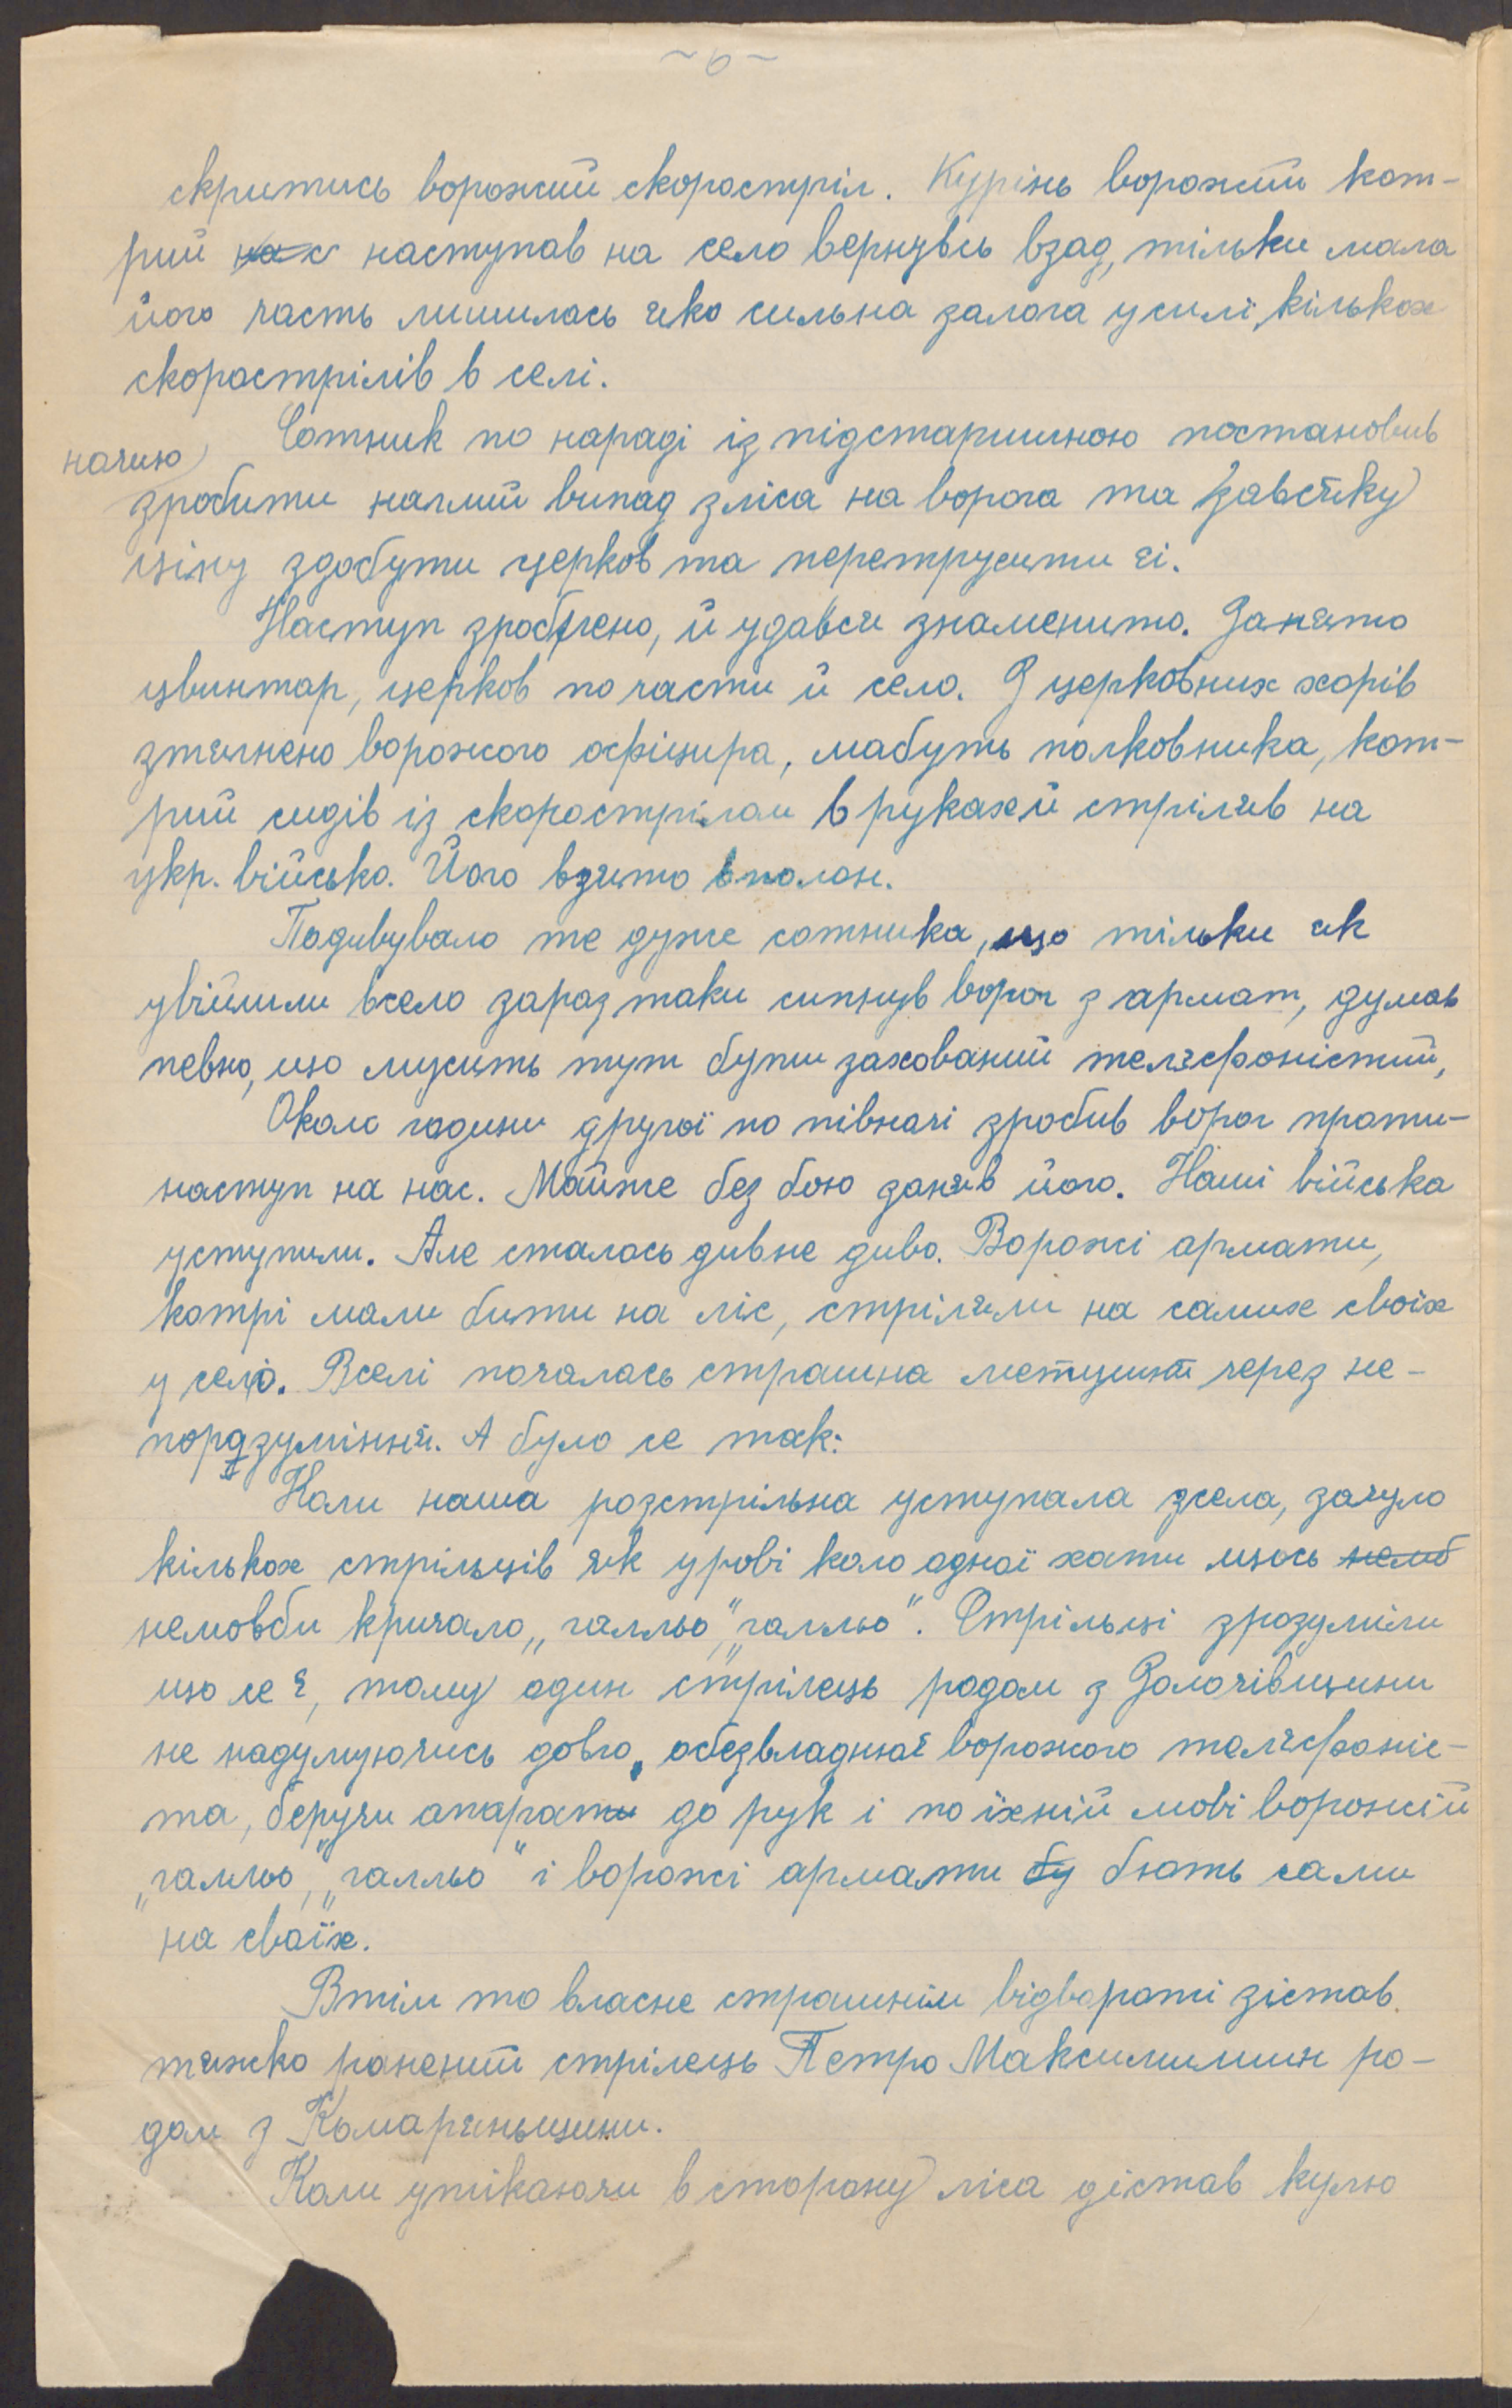 ~6~
скритись ворожий скоростріл. Курінь ворожий кот-
рий нас наступав на село вернувсь взад, тільки мала
його часть лишилась яко сильна залога у силі кількох
скорострілів в селі.
Сотник по нараді із підстаршиною постановив
ночию
зробити наглий випад зліса на ворога та завсяку
ціну здобути церков та перетрусити єі.
Наступ зроблено, й удався знаменито. Занято
цвинтар, церков по части й село. З церковних хорів
зтягнено ворожого офіцира, мабуть полковника, кот-
рий сидів із скорострілом в руках й стріляв на
укр. військо. Його взято вполон.
Подивувало те дуже сотника, що тільки як
увійшли всело зараз таки сипнув ворог з армат, думав
певно, що мусить тут бути захований телєфоністий,
Около години другої по півночі зробив ворог проти-
наступ на нас. Майже без бою заняв його. Наші війська
уступили. Але сталось дивне диво. Ворожі армати,
котрі мали бити на ліс, стріляли на самих своїх
у село. Вселі почалась страшна метушня через не-
порозуміння. А було се так:
Коли наша розстрільна уступала зсела, зачуло
кількох стрільців як у рові коло одної хати щось немо
немовби кричало „галльо”, „галльо”. Стрільці зрозуміли
що се є, тому один стрілець родом з Золочівщини
не надумуючись довго, обезвладнює ворожого телєфоніс-
та, беручи апарати до рук і по їхній мові ворожій
„галльо”, „галльо” і ворожі армати бу бють сами
на своїх.
Втім то власне страшнім відвороті зістав
тяжко ранений стрілець Петро Максимишин ро-
дом з Комарнянщини.
Коли утікаючи в сторону ліса дістав кулю